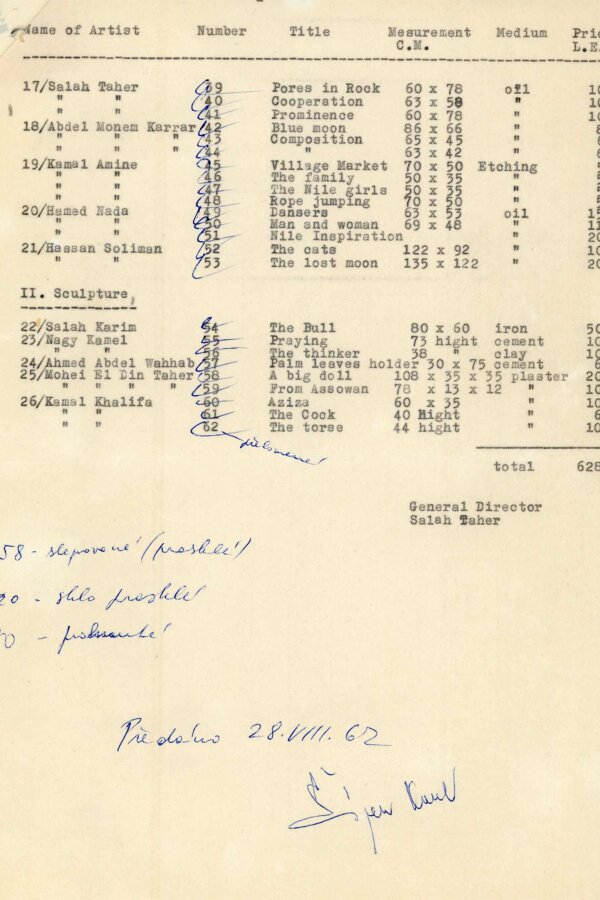 Name of Artist Number Title Mesurement Medium Pric
C.M. L.E.
17/Salah Taher 39 Pores in Rock 60 x 78 oil 10
" " 40 Cooperation 63 x 58 " 10
" " 41 Prominence 60 x 78 " 10
18/Abdel Monem Karrar 42 Blue moon 86 x 66 " 8
" " " 43 Composition 65 x 45 " 6
" " " 44 " 63 x 42 " 6
19/Kamal Amine 45 Village Market 70 x 50 Etching
" " 46 The family 50 x 35 "
" " 47 The Nile girls 50 x 35 "
" " 48 Rope jumping 70 x 50 "
20/Hamed Nada 49 Dansers 63 x 53 oil 15
" " 50 Man and woman 69 x 48 " 11
" " 51 Nile Inspiration " 20
21/Hassan Soliman 52 The cats 122 x 92 " 10
" " 53 The lost moon 135 x 122 " 20
II. Sculpture,
22/Salah Karim 54 The Bull 80 x 60 iron 50
23/Nagy Kamel 55 Praying 73 hight cement 10
" " 56 The thinker 38 " clay 10
24/Ahmed Abdel Wahhab 57 Palm leaves holder 30 x 75 cement 6
25/Mohei El Din Taher 58 A big doll 108 x 35 x 35 plaster 20
" " " " 59 From Assowan 78 x 13 x 12 " 10
26/Kamal Khalifa 60 Aziza 60 x 35 " 10
" " 61 The Cock 40 Hight " 10
" " 62 The torse 44 hight " 10
total 628
General Director
Salah Taher
58 - slepované (prasklé)
20 - sklo prasklé
Předáno 28.VIII.62